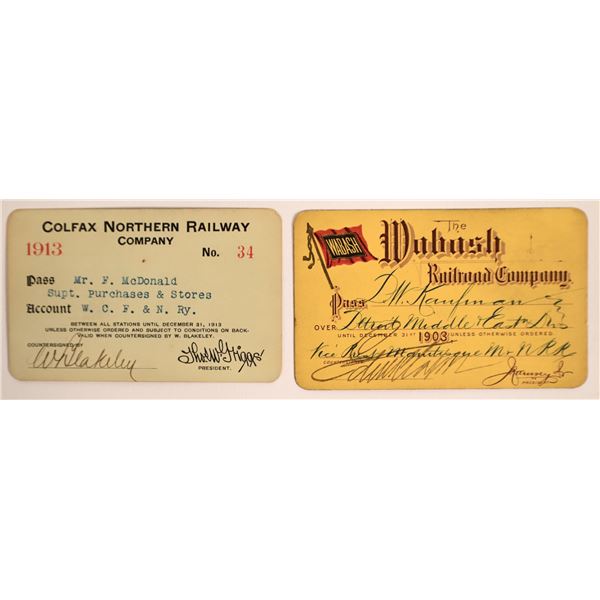 COLFAX NORTHERN RAILWAY
COMPANY
1913 No. 34
Pass Mr. F. McDonald
Supt. Purchases & Stores
Account W. C. F. & N. Ry.
BETWEEN ALL STATIONS UNTIL DECEMBER 31, 1913
UNLESS OTHERWISE ORDERED AND SUBJECT TO CONDITIONS ON BACK-
VALID WHEN COUNTERSIGNED BY W. BLAKELEY.
COUNTERSIGNED BY
W Blakeley
PRESIDENT.
WABASH
The
Wabash
Railroad Company
Pass W Kaufman
OVER Detroit Middle & East
UNTIL DECEMBER 31ST 1903. UNLESS OTHERWISE ORDERED.
Vice Prest Manistique
COUNTERSIGNED
Ramsey Jr
PRESIDENT